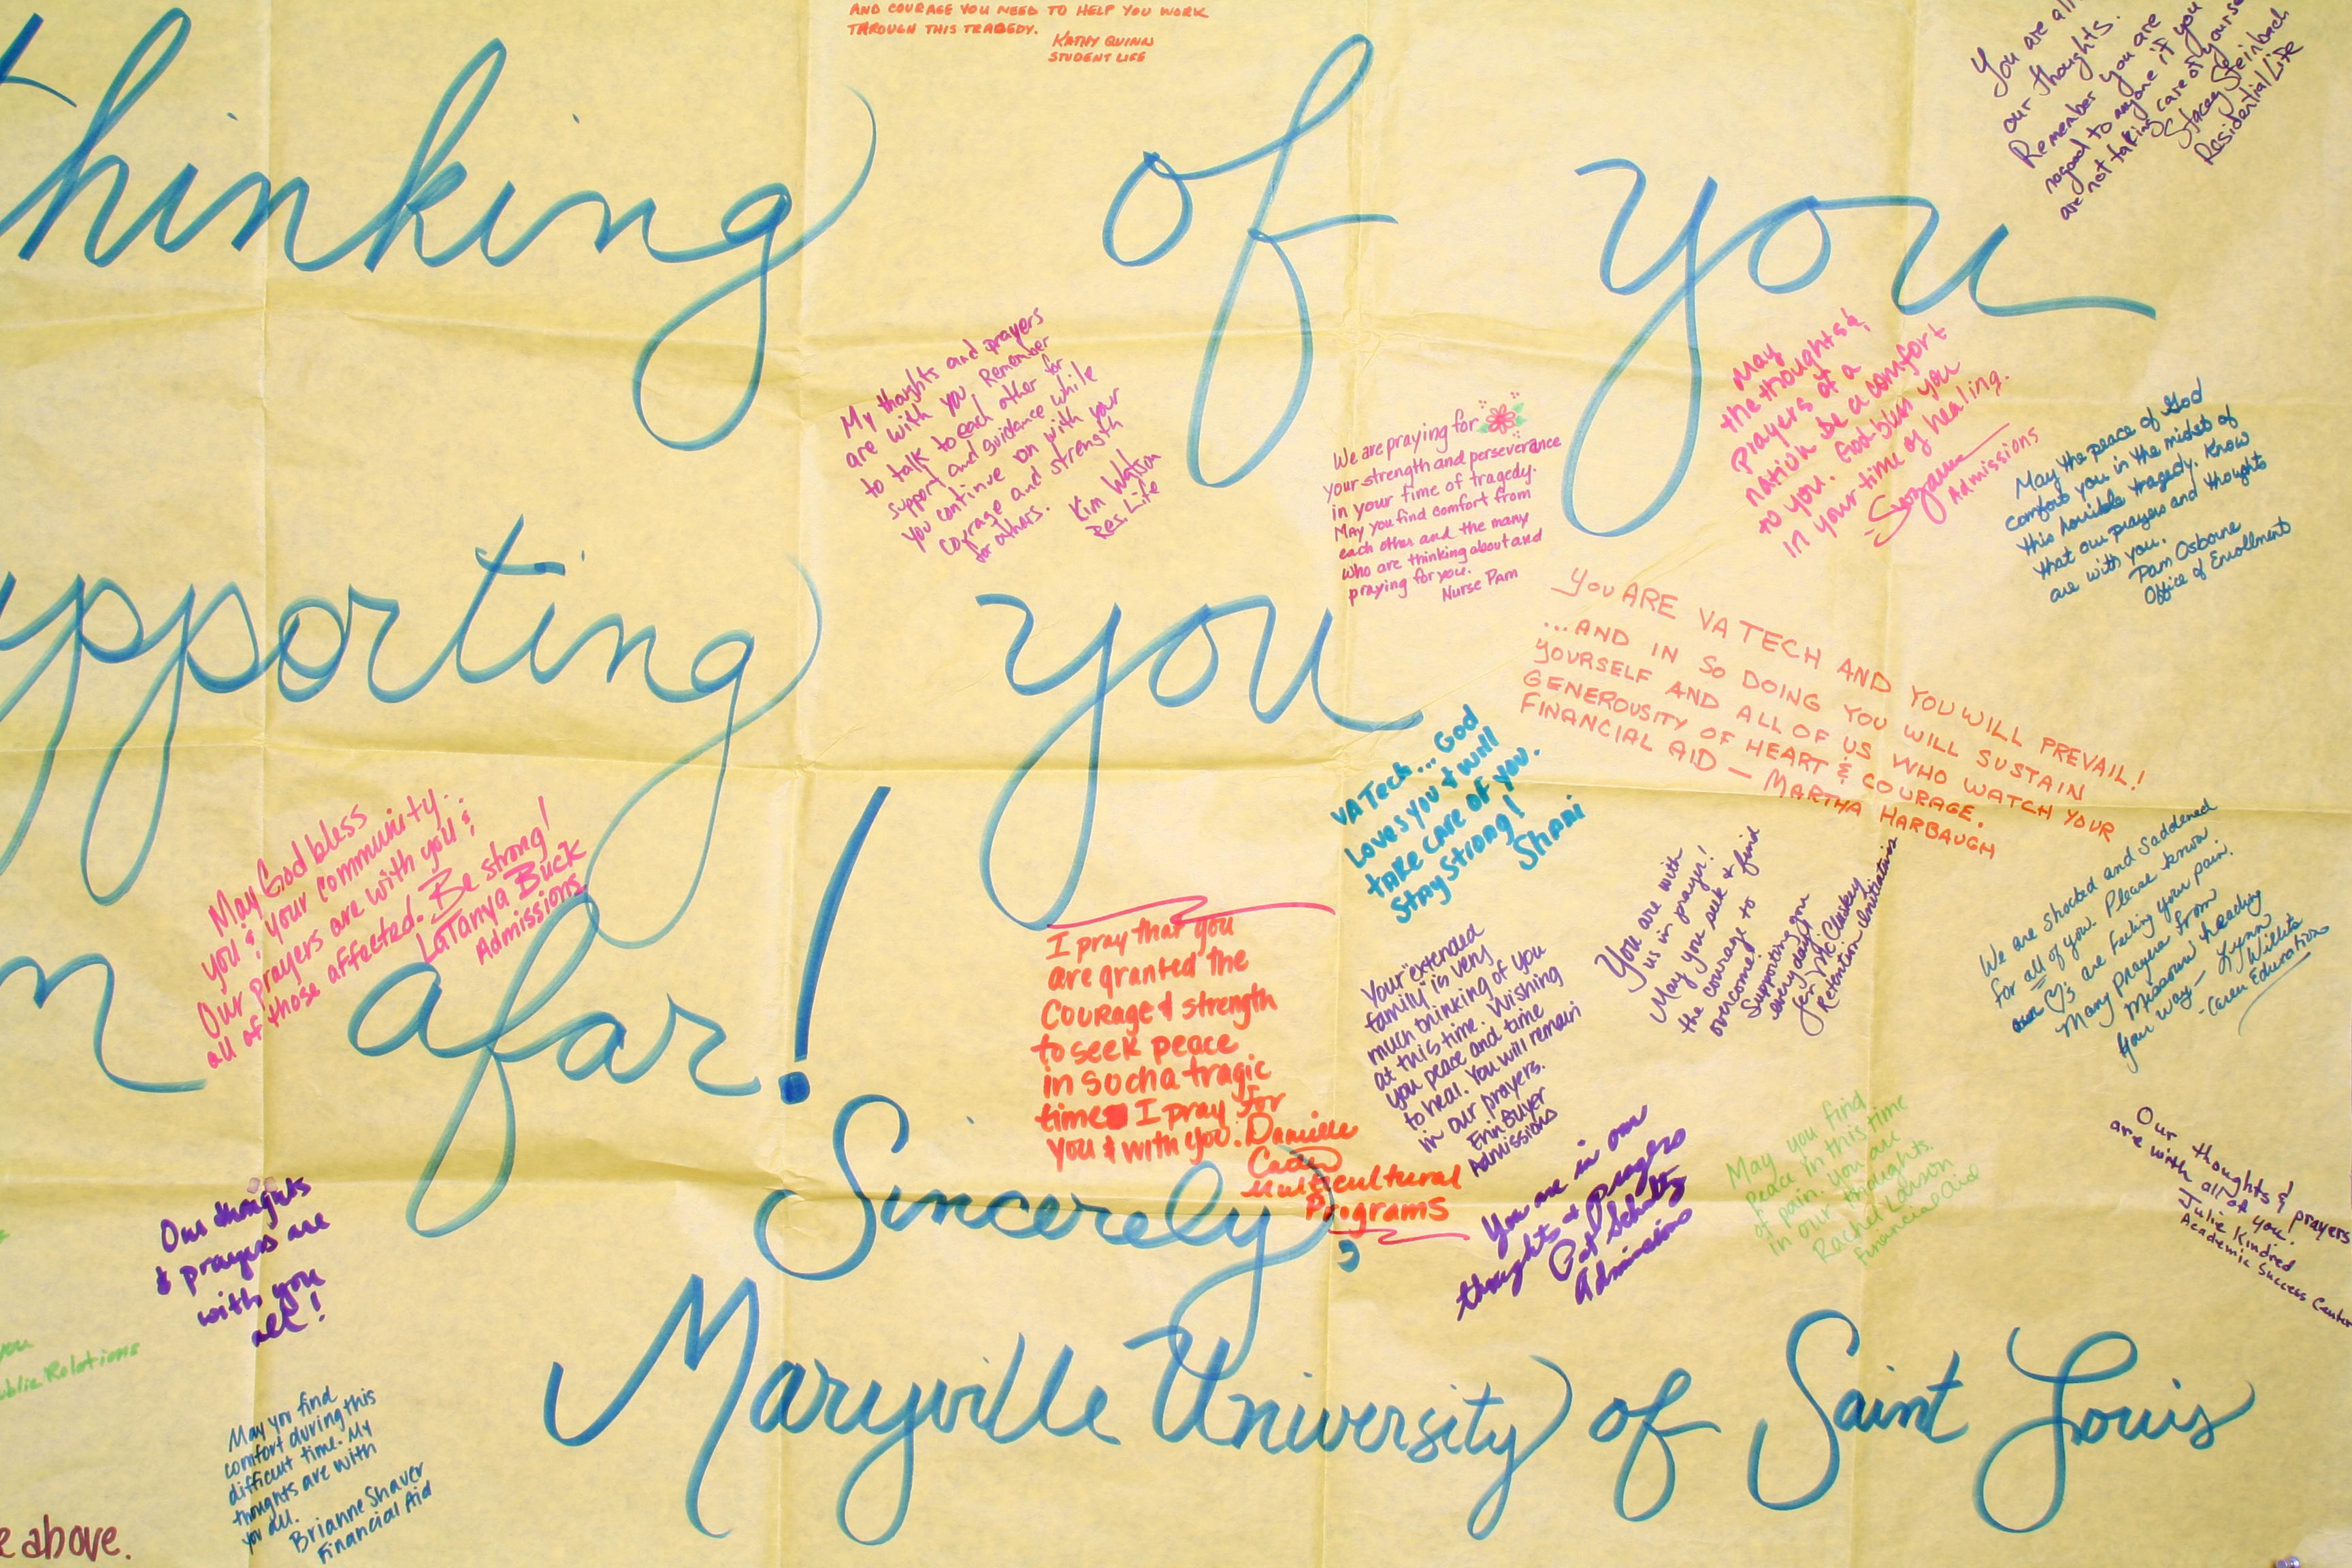 AND COURAGE YOU NEED TO HELP YOU WORK
THROUGH THIS TRAGEDY.
KATHY QUINN
STUDENT LIFE
You are all
our thoughts.
Remember you are
no good to anyone if you
are not taking care of yourse
Stacey Steinbach
Residential Life
thinking of you
My thoughts and prayers
are with you. Remember
to talk to each other for
support and guidance while
you continue on with your
courage and strength
for others.
Kim Watson
Res. Life
We are praying for
your strength and perseverance
in your time of tragedy.
May you find comfort from
each other and the many
who are thinking about and
praying for you.
Nurse Pam
May
the thoughts &
Prayers of a
nation be a comfort
to you. God bless you
in your time of healing.
- Suzanne
Admissions
May the peace of God
comfort you in the midst of
this horrible tragedy. Know
that our prayers and thoughts
are with you.
Pam Osborne
Office of Enrollment
pporting you
YOU ARE VA TECH AND YOU WILL PREVAIL!
...AND IN SO DOING YOU WILL SUSTAIN
YOURSELF AND ALL OF US WHO WATCH YOUR
GENEROUSITY OF HEART & COURAGE.
FINANCIAL AID — MARTHA HARBAUGH
VA Tech... God
loves you & will
take care of you.
Stay Strong!
Shani
May God bless
you & your community.
Our prayers are with you &
all of those affected. Be strong!
LaTanya Buck
Admissions
afar!
I pray that you
are granted the
Courage & strength
to seek peace
in such a tragic
time I pray for
you & with you. Danielle
Multicultural
Programs
Your "extended
family" is very
much thinking of you
at this time. Wishing
you peace and time
to heal. You will remain
in our prayers.
Erin Buyer
Admissions
You are with
us in prayer!
May you seek & find
the courage to
overcome!
Supporting you
every day!
Jen McCluskey
Retention Initiatives
We are shocked and saddened
for all of you. Please know
our ♡'s are feeling your pain.
Many prayers from
Missouri heading
your way — Lynn
Willits
- Career Education
Our thoughts
& prayers are
with you
all!
You are in our
thoughts & prayers
Pat Schultz
Admissions
May you find
peace in this time
of pain. you are
in our thoughts.
Rachel Lawson
Financial Aid
Our thoughts & prayers
are with all of you!
Julie Kindred
Academic Success Center
Sincerely,
Maryville University of Saint Louis
you
ublic Relations
May you find
comfort during this
difficult time. My
thoughts are with
you all.
Brianne Shaver
Financial Aid
e above.